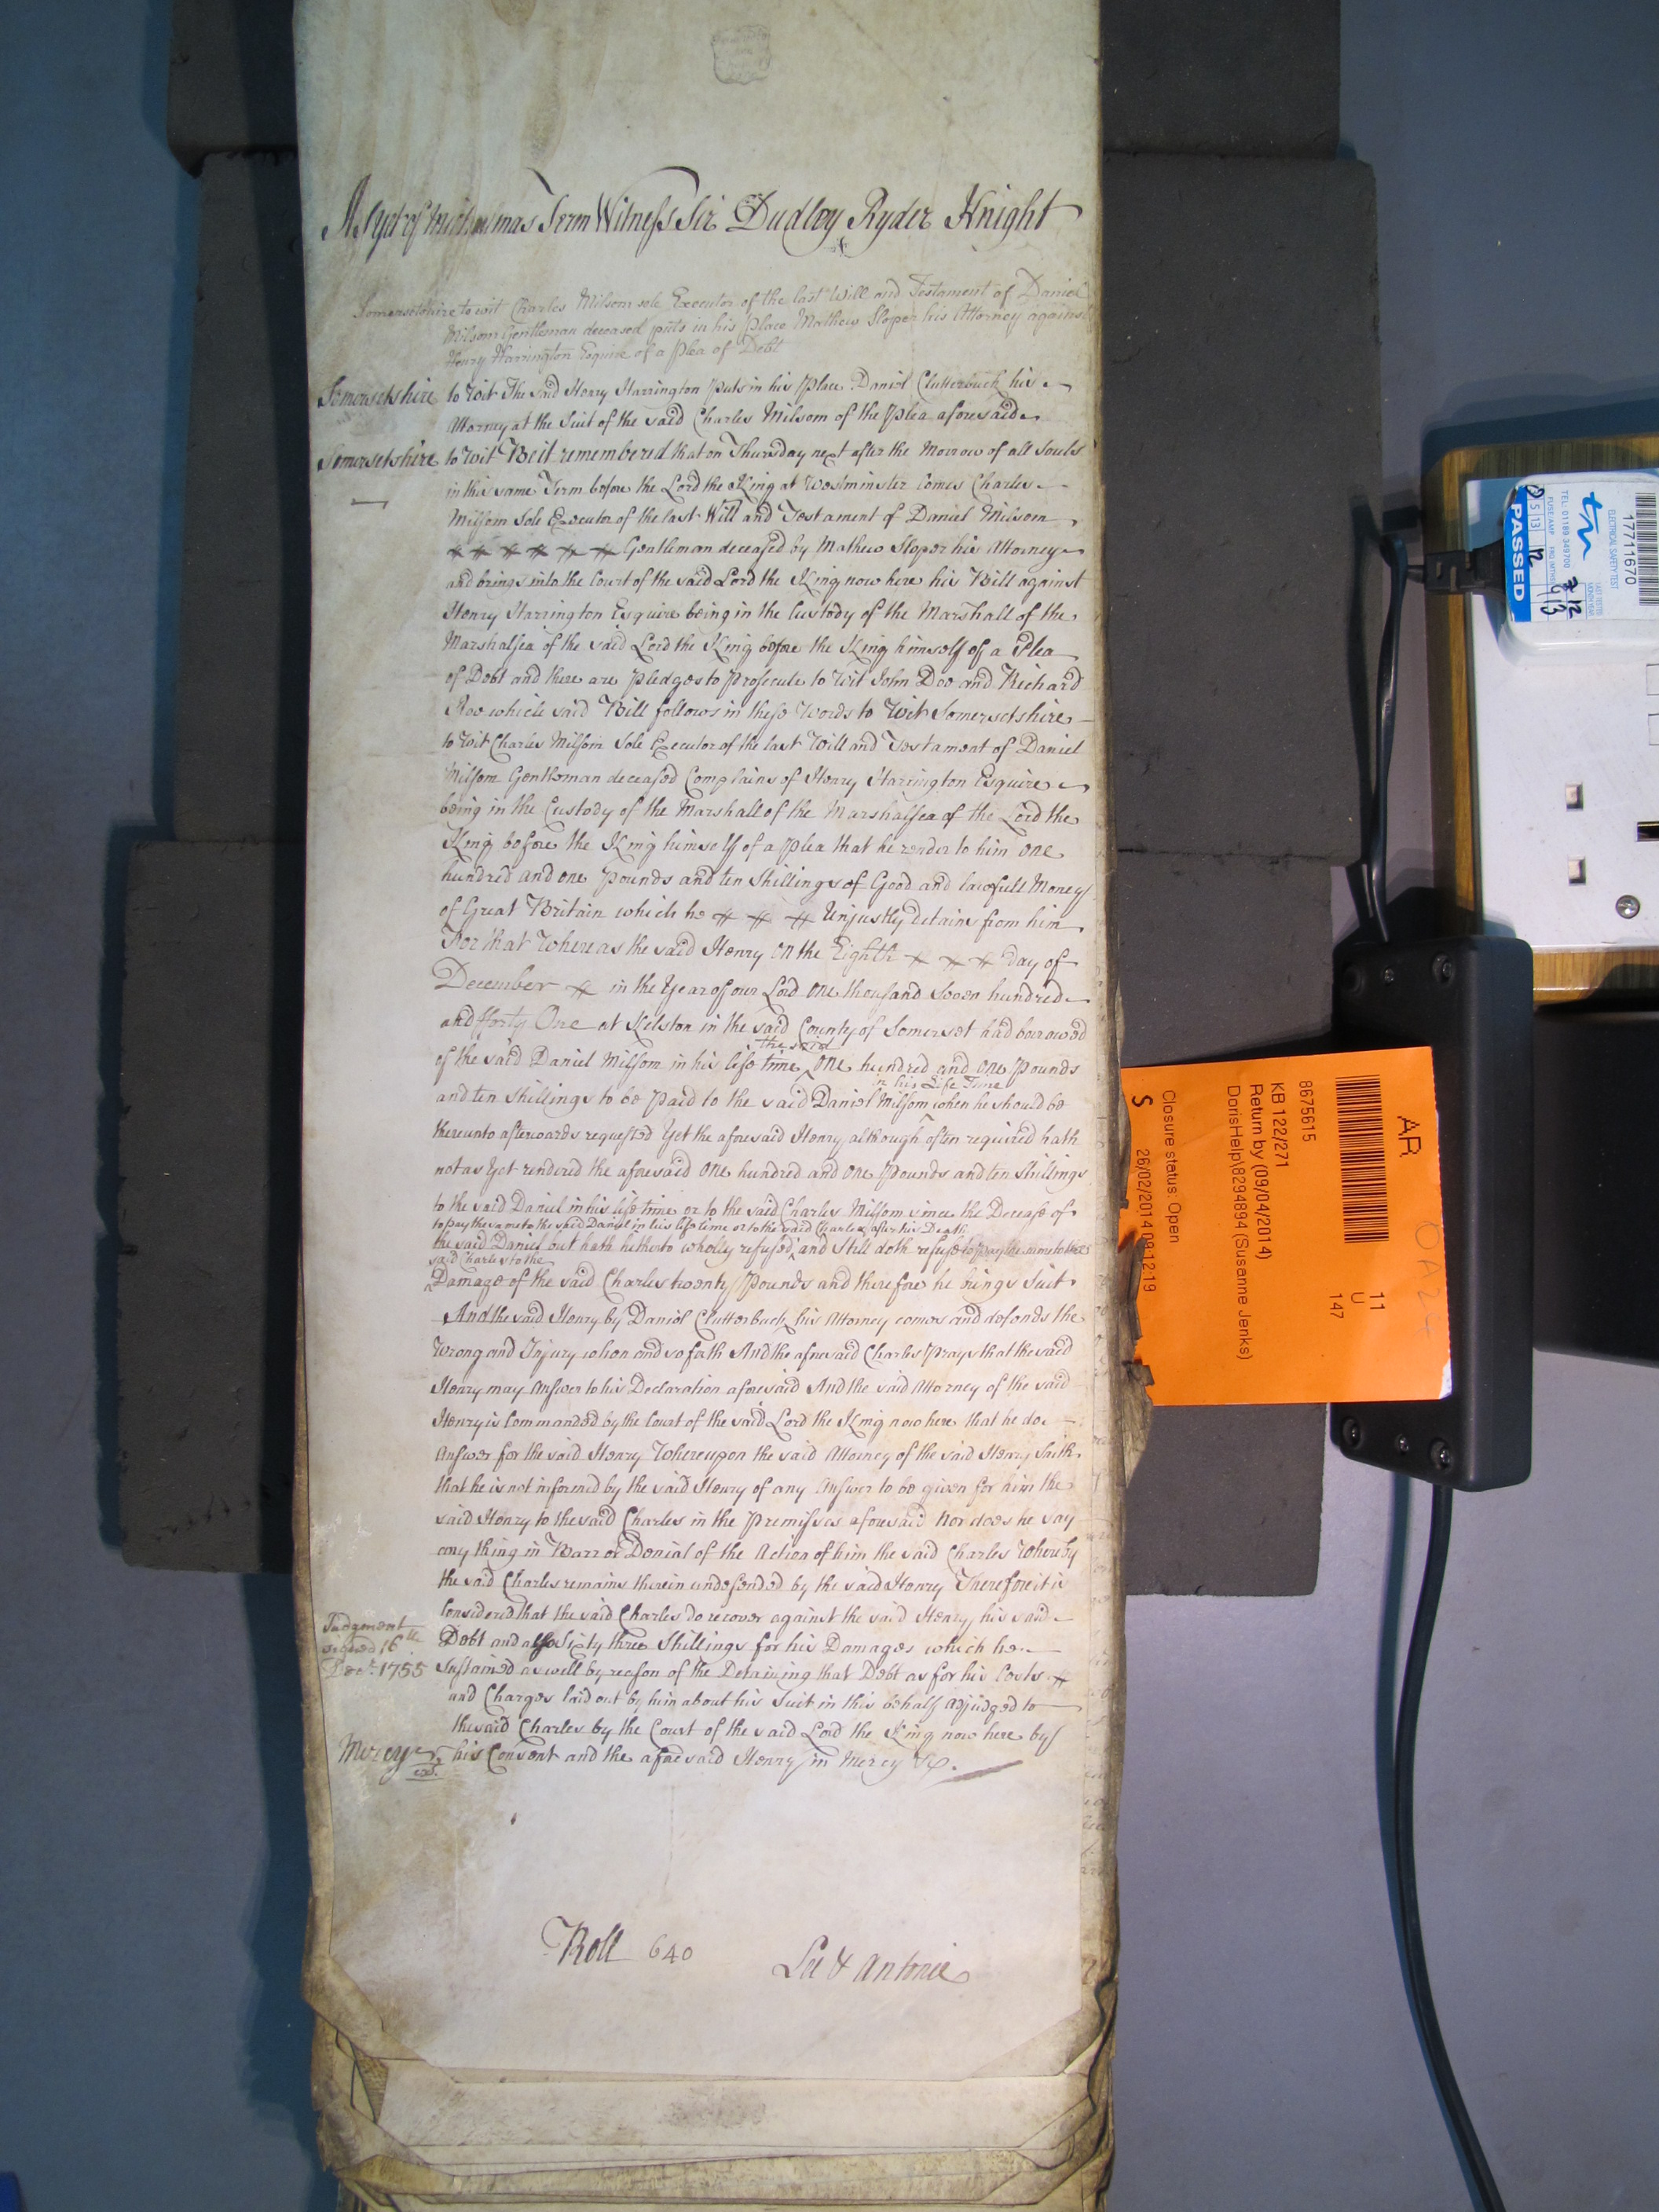 As Yet of Michaelmas Term Witness Sir Dudley Ryder Knight
Somersetshire to wit Charles Milsom sole Executor of the last Will and Testament of Daniel
Milsom Gentleman deceased puts in his Place Mathew Sloper his Attorney against
Henry Harrington Esquire of a Plea of Debt
Somersetshire to Wit The said Henry Harrington Puts in his Place Daniel Clutterbuck his
Attorney at the Suit of the said Charles Milsom of the Plea aforesaid
Somersetshire to Wit Be it remembered that on Thursday next after the Morrow of all Souls
in this same Term before the Lord the King at Westminster Comes Charles
Milsom Sole Executor of the last Will and Testament of Daniel Milsom
Gentleman deceased by Mathew Sloper his Attorney
and brings into the Court of the said Lord the King now here his Bill against
Henry Harrington Esquire being in the Custody of the Marshall of the
Marshalsea of the said Lord the King before the King himself of a Plea
of Debt and there are Pledges to Prosecute to Wit John Doo and Richard
Roo which said Bill follows in these Words to Wit Somersetshire
to Wit Charles Milsom Sole Executor of the last Will and Testament of Daniel
Milsom Gentleman deceased Complains of Henry Harrington Esquire
being in the Custody of the Marshall of the Marshalsea of the Lord the
King before the King himself of a Plea that he render to him one
hundred and one Pounds and ten Shillings of Good and lawfull Money
of Great Britain which he Unjustly detains from him
For that Whereas the said Henry on the Eighth day of
December in the Year of our Lord one thousand Seven hundred
and fforty One at Kelston in the said County of Somerset had borrowed
of the said Daniel Milsom in his life time the said one hundred and one Pounds
and ten Shillings to be Paid to the said Daniel Milsom in his Life Time when he should be
thereunto afterwards requested Yet the aforesaid Henry although often required hath
not as Yet rendered the aforesaid one hundred and one Pounds and ten Shillings
to the said Daniel in his life time or to the said Charles Milsom since the Decease of
to pay the same to the said Daniel in his life time or to the said Charles after his Death
the said Daniel but hath hetherto wholly refused and Still doth refuse to pay the same to the
said Charles to the
Damage of the said Charles twenty Pounds and therefore he brings Suit
And the said Henry by Daniel Clutterbuck his Attorney comes and defends the
Wrong and Injury when and so forth And the aforesaid Charles Prays that the said
Henry may Answer to his Declaration aforesaid And the said Attorney of the said
Henry is Commanded by the Court of the said Lord the King now here that he do
Answer for the said Henry Whereupon the said Attorney of the said Henry Saith
that he is not informed by the said Henry of any Answer to be given for him the
said Henry to the said Charles in the Premisses aforesaid Nor does he say
any thing in Barr or Denial of the Action of him the said Charles Whereby
the said Charles remains therein undefended by the said Henry Therefore it is
Considered that the said Charles do recover against the said Henry his said
Judgement
signed 16th
Decr. 1755
Debt and also Sixty three Shillings for his Damages which he
Sustained as well by reason of the Detaining that Debt as for his Costs
and Charges laid out by him about his Suit in this behalf Adjudged to
the said Charles by the Court of the said Lord the King now here by
Mercy
his Consent and the aforesaid Henry in Mercy &c.
Roll 640
Lee & Antonie
AR
11
U
147
8675615
KB 122/271
Return by (09/04/2014)
DorisHelp\8294894 (Susanne Jenks)
Closure status: Open
S
26/02/2014 09:12:19
OA24
17711670
ELECTRICAL SAFETY TEST
TEL: 01189 349700
PASSED